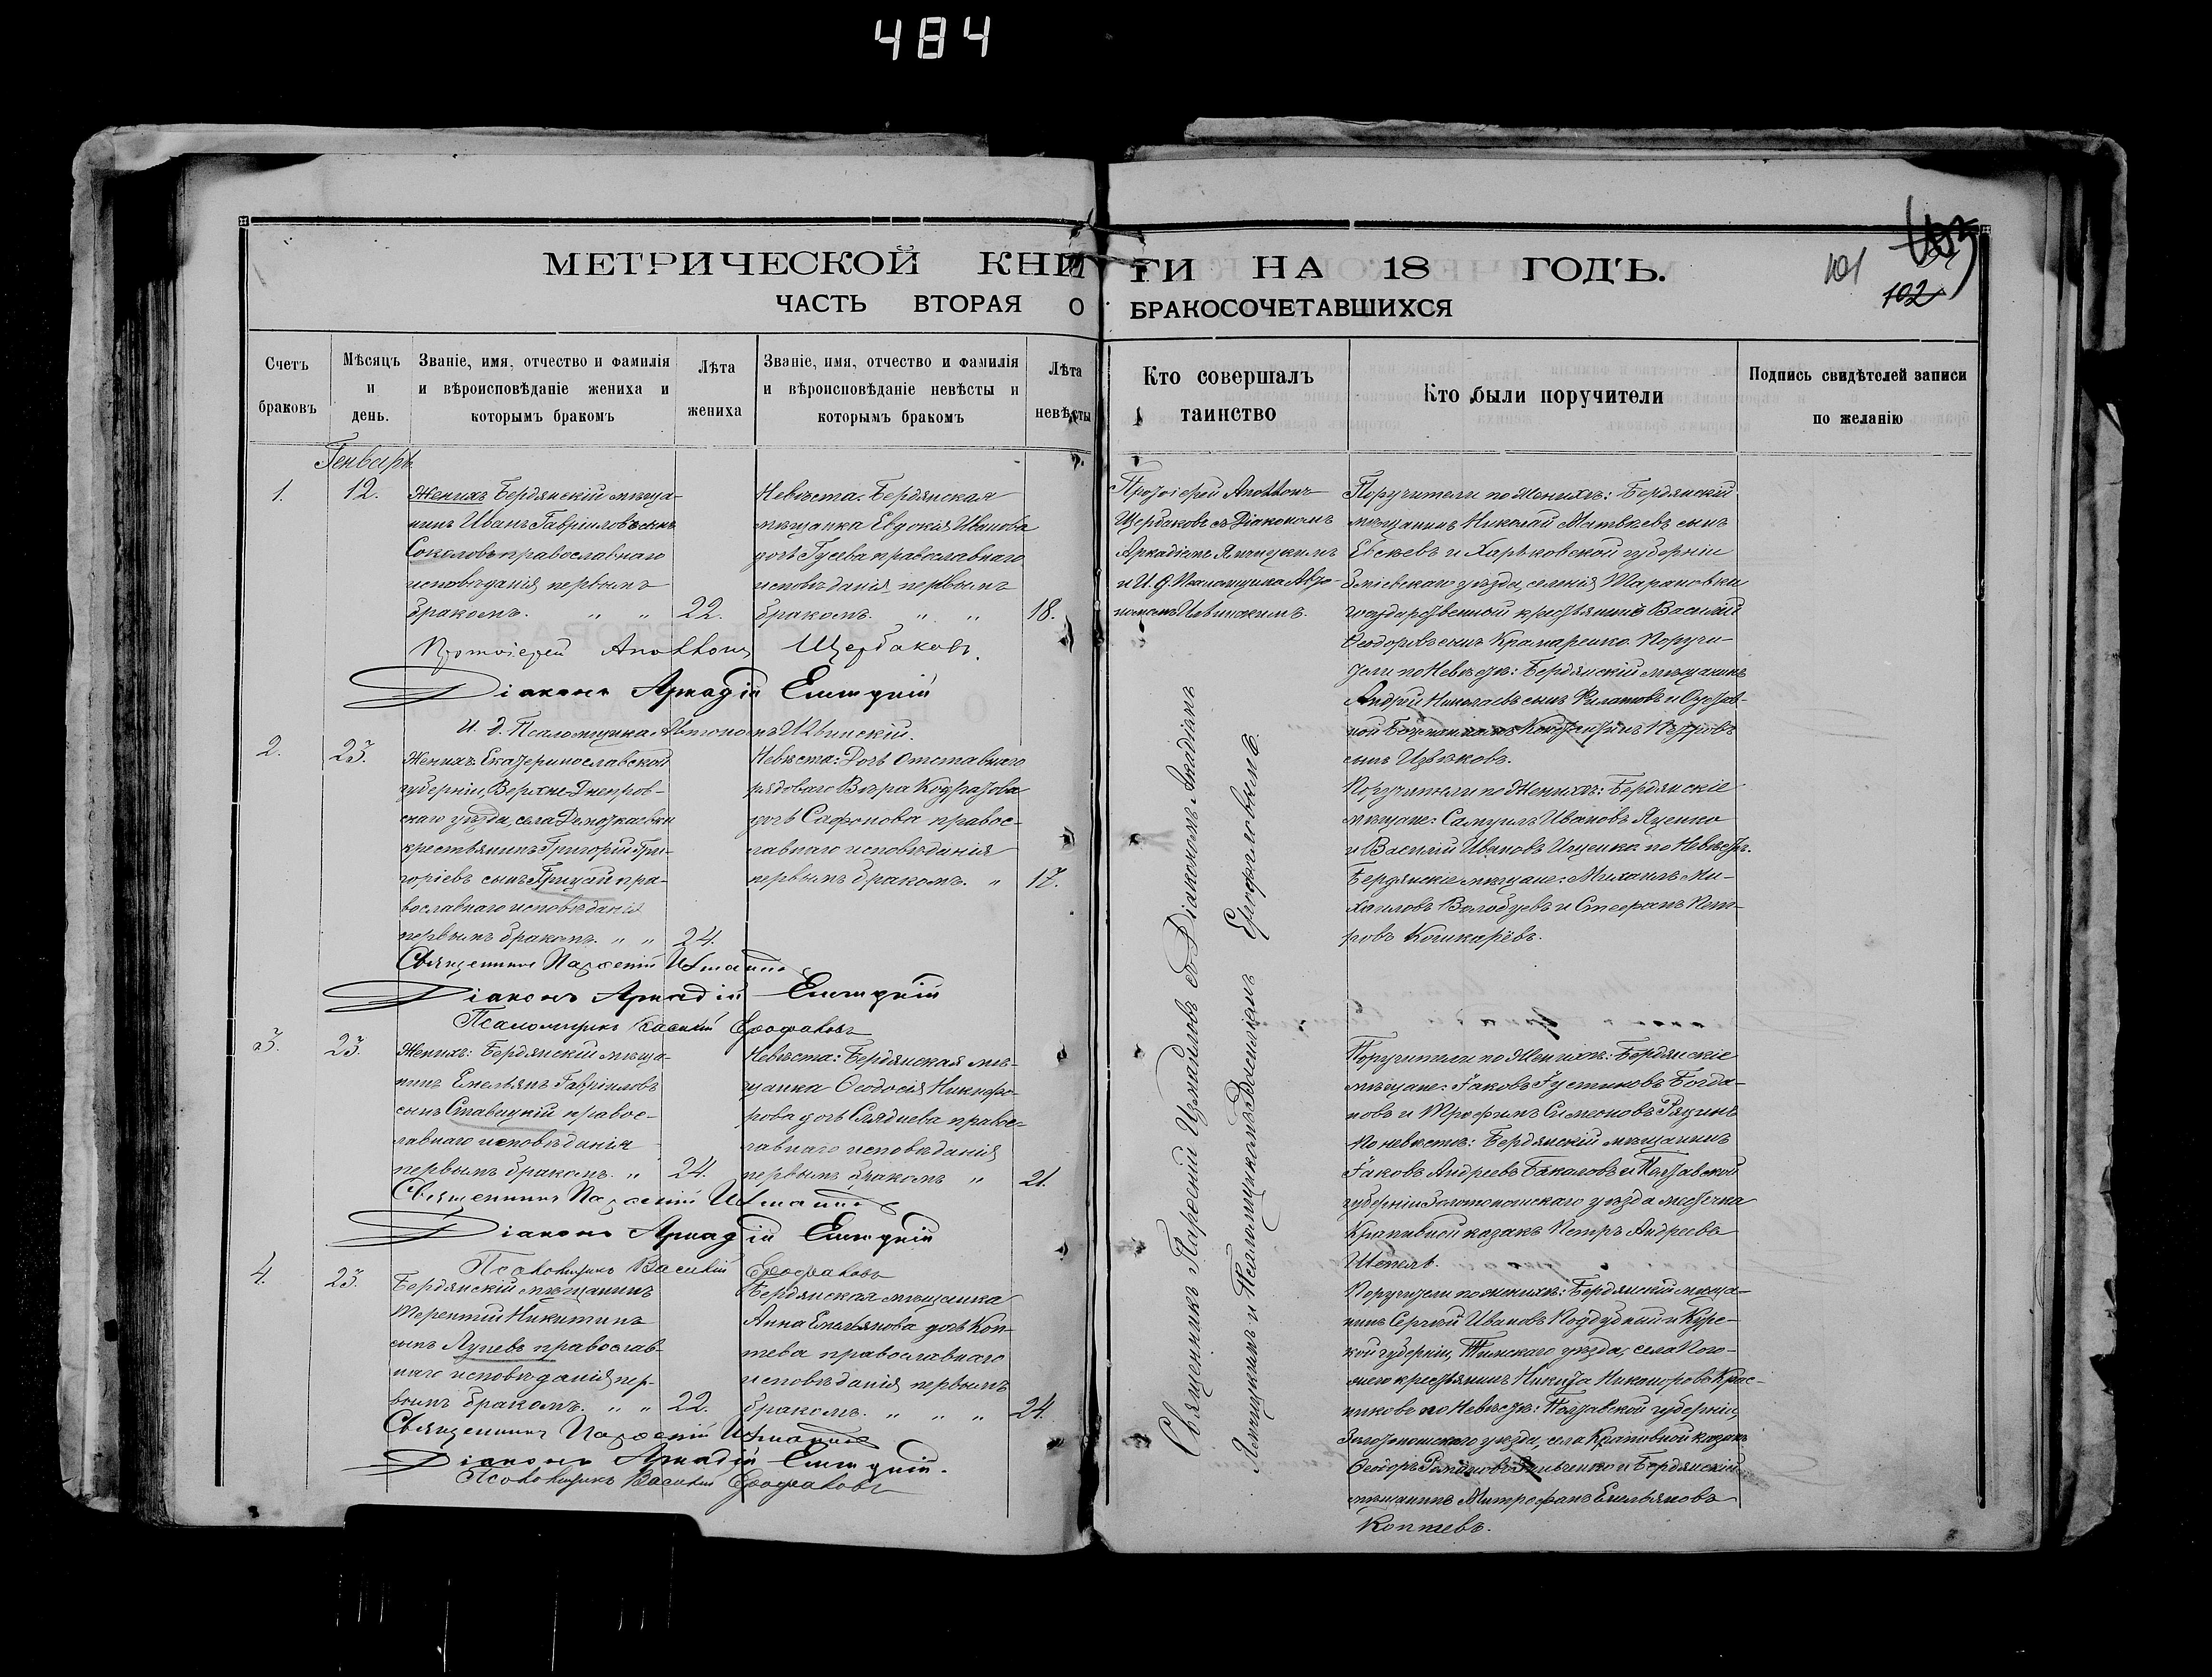 484
МЕТРИЧЕСКОЙ КНИГИ НА 18 ГОДЪ.
101
102
ЧАСТЬ ВТОРАЯ О БРАКОСОЧЕТАВШИХСЯ
Счетъ браковъ
Мѣсяцъ и день.
Званіе, имя, отчество и фамилія
и вѣроисповѣданіе жениха и
которымъ бракомъ
Лѣта жениха
Званіе, имя, отчество и фамилія
и вѣроисповѣданіе невѣсты и
которымъ бракомъ
Лѣта невѣсты
Кто совершалъ
таинство
Кто были поручители
Подпись свидѣтелей записи
по желанію
Генварь
1.
12.
Женихъ Бердянскій мѣща-
нинъ Иванъ Гавріиловъ сынъ
Соколовъ православнаго
исповѣданія первымъ
бракомъ. " " 22.
Невѣста. Бердянская
мѣщанка Евдокія Иванова
дочь Гусева православнаго
исповѣданія первымъ
бракомъ. " " 18.
Протоіерей Аполлонъ
Щербаковъ съ Діакономъ
Аркадіемъ
и И. д. Псаломщика Авто-
номомъ Ильинскимъ.
Поручители по Женихѣ: Бердянскій
мѣщанинъ Николай Матвѣевъ сынъ
Евсѣевъ и Харьковской губерніи
Зміевскаго уѣзда, селенія Тарановки
государственный крестьянинъ Василій
Ѳеодоровъ сынъ Крамаренко. Поручи-
тели по Невѣстѣ: Бердянскій мѣщанинъ
Андрей Николаевъ сынъ Филатовъ и Отстав-
ной Константинъ Петровъ
сынъ
Протоіерей Аполлонъ Щербаковъ.
Діаконъ Аркадій
И. д. Псаломщика Автономъ Ильинскій.
2.
23.
Женихъ Екатеринославской
губерніи, Верхне-Днепров-
скаго уѣзда, села
крестьянинъ Григорій Гри-
горіевъ сынъ Грицай пра-
вославнаго исповѣданія
первымъ бракомъ. " " 24.
Невѣста: Дочь отставнаго
рядоваго Вѣра Кодратова
дочь Сафонова правос-
лавнаго исповѣданія
первымъ бракомъ. " 17.
Поручители по Женихѣ: Бердянскіе
мѣщане: Самуилъ Ивановъ Яценко
и Василій Ивановъ Ищенко по Невѣстѣ.
Бердянскіе мѣщане: Михаилъ Ми-
хаиловъ Волобуевъ и Стефанъ Пет-
ровъ Кошкарёвъ.
Священникъ Парѳеній Измаиловъ
Діаконъ Аркадій
Псаломщикъ Василій Ерофаловъ
3.
23.
Женихъ: Бердянскій мѣща-
нинъ Емельянъ Гавріиловъ
сынъ Ставицкій правос-
лавнаго исповѣданія
первымъ бракомъ. " 24.
Невѣста: Бердянская мѣ-
щанка Ѳеодосія Никифо-
рова дочь православ-
лавнаго исповѣданія
первымъ бракомъ " 21.
Поручители по Женихѣ: Бердянскіе
мѣщане: Іаковъ Іустиновъ Богда-
новъ и Трофимъ Симеоновъ
По невѣстѣ: Бердянскій мѣщанинъ
Іаковъ Андреевъ Бакаловъ и Полтавской
губерніи Золотоношскаго уѣзда мѣстечка
Крапивной казакъ Петръ Андреевъ
Шепель.
Священникъ Парѳеній Измаиловъ
Діаконъ Аркадій
Псаломщикъ Василій Ерофаловъ
4.
23.
Бердянскій мѣщанинъ
Терентій Никитинъ
сынъ Лупевъ православ-
наго исповѣданія пер-
вымъ бракомъ. " " 22.
Бердянская мѣщанка
Анна Емельянова дочь Коп-
тева православнаго
исповѣданія первымъ
бракомъ. " " " 24.
Поручители по женихѣ: Бердянскій мѣща-
нинъ Сергѣй Ивановъ Поддубный и Курс-
кой губерніи, Тимскаго уѣзда, села Пого-
жего крестьянинъ Никита Никаноровъ Крас-
никовъ по Невѣстѣ: Полтавской губерніи,
Золотоношскаго уѣзда, села Крапивной казакъ
Ѳеодоръ и Бердянскій
мѣщанинъ Митрофанъ Емельяновъ
Коптевъ.
Священникъ Парѳеній Измаиловъ
Діаконъ Аркадій
Псаломщикъ Василій Ерофаловъ
Священникъ Парѳеній Измаиловъ съ Діакономъ Аркадіемъ
и Псаломщикомъ Василіемъ